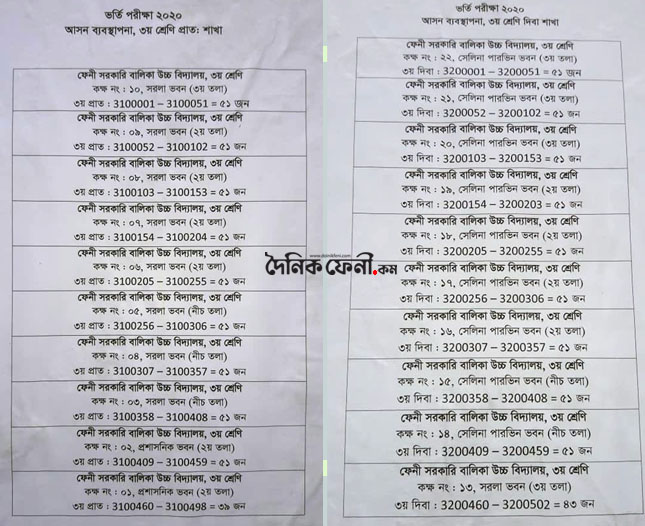 ভর্তি পরীক্ষা ২০২০
আসন ব্যবস্থাপনা, ৩য় শ্রেণি প্রাত: শাখা
ফেনী সরকারি বালিকা উচ্চ বিদ্যালয়, ৩য় শ্রেণি
কক্ষ নং : ১০, সরলা ভবন (৩য় তলা)
৩য় প্রাত : 3100001 – 3100051 = ৫১ জন
ফেনী সরকারি বালিকা উচ্চ বিদ্যালয়, ৩য় শ্রেণি
কক্ষ নং : ০৯, সরলা ভবন (২য় তলা)
৩য় প্রাত : 3100052 – 3100102 = ৫১ জন
ফেনী সরকারি বালিকা উচ্চ বিদ্যালয়, ৩য় শ্রেণি
কক্ষ নং : ০৮, সরলা ভবন (২য় তলা)
৩য় প্রাত : 3100103 – 3100153 = ৫১ জন
ফেনী সরকারি বালিকা উচ্চ বিদ্যালয়, ৩য় শ্রেণি
কক্ষ নং : ০৭, সরলা ভবন (২য় তলা)
৩য় প্রাত : 3100154 – 3100204 = ৫১ জন
ফেনী সরকারি বালিকা উচ্চ বিদ্যালয়, ৩য় শ্রেণি
কক্ষ নং : ০৬, সরলা ভবন (২য় তলা)
৩য় প্রাত : 3100205 – 3100255 = ৫১ জন
ফেনী সরকারি বালিকা উচ্চ বিদ্যালয়, ৩য় শ্রেণি
কক্ষ নং : ০৫, সরলা ভবন (নীচ তলা)
৩য় প্রাত : 3100256 – 3100306 = ৫১ জন
ফেনী সরকারি বালিকা উচ্চ বিদ্যালয়, ৩য় শ্রেণি
কক্ষ নং : ০৪, সরলা ভবন (নীচ তলা)
৩য় প্রাত : 3100307 – 3100357 = ৫১ জন
ফেনী সরকারি বালিকা উচ্চ বিদ্যালয়, ৩য় শ্রেণি
কক্ষ নং : ০৩, সরলা ভবন (নীচ তলা)
৩য় প্রাত : 3100358 – 3100408 = ৫১ জন
ফেনী সরকারি বালিকা উচ্চ বিদ্যালয়, ৩য় শ্রেণি
কক্ষ নং : ০২, প্রশাসনিক ভবন (২য় তলা)
৩য় প্রাত : 3100409 – 3100459 = ৫১ জন
ফেনী সরকারি বালিকা উচ্চ বিদ্যালয়, ৩য় শ্রেণি
কক্ষ নং : ০১, প্রশাসনিক ভবন (২য় তলা)
৩য় প্রাত : 3100460 – 3100498 = ৩৯ জন
www.dainikfeni.com
দৈনিক ফেনী.কম
ভর্তি পরীক্ষা ২০২০
আসন ব্যবস্থাপনা, ৩য় শ্রেণি দিবা শাখা
ফেনী সরকারি বালিকা উচ্চ বিদ্যালয়, ৩য় শ্রেণি
কক্ষ নং : ২২, সেলিনা পারভিন ভবন (৩য় তলা)
৩য় দিবা : 3200001 – 3200051 = ৫১ জন
ফেনী সরকারি বালিকা উচ্চ বিদ্যালয়, ৩য় শ্রেণি
কক্ষ নং : ২১, সেলিনা পারভিন ভবন (৩য় তলা)
৩য় দিবা : 3200052 – 3200102 = ৫১ জন
ফেনী সরকারি বালিকা উচ্চ বিদ্যালয়, ৩য় শ্রেণি
কক্ষ নং : ২০, সেলিনা পারভিন ভবন (৩য় তলা)
৩য় দিবা : 3200103 – 3200153 = ৫১ জন
ফেনী সরকারি বালিকা উচ্চ বিদ্যালয়, ৩য় শ্রেণি
কক্ষ নং : ১৯, সেলিনা পারভিন ভবন (২য় তলা)
৩য় দিবা : 3200154 – 3200203 = ৫১ জন
ফেনী সরকারি বালিকা উচ্চ বিদ্যালয়, ৩য় শ্রেণি
কক্ষ নং : ১৮, সেলিনা পারভিন ভবন (২য় তলা)
৩য় দিবা : 3200205 – 3200255 = ৫১ জন
ফেনী সরকারি বালিকা উচ্চ বিদ্যালয়, ৩য় শ্রেণি
কক্ষ নং : ১৭, সেলিনা পারভিন ভবন (২য় তলা)
৩য় দিবা : 3200256 – 3200306 = ৫১ জন
ফেনী সরকারি বালিকা উচ্চ বিদ্যালয়, ৩য় শ্রেণি
কক্ষ নং : ১৬, সেলিনা পারভিন ভবন (২য় তলা)
৩য় দিবা : 3200307 – 3200357 = ৫১ জন
ফেনী সরকারি বালিকা উচ্চ বিদ্যালয়, ৩য় শ্রেণি
কক্ষ নং : ১৫, সেলিনা পারভিন ভবন (নীচ তলা)
৩য় দিবা : 3200358 – 3200408 = ৫১ জন
ফেনী সরকারি বালিকা উচ্চ বিদ্যালয়, ৩য় শ্রেণি
কক্ষ নং : ১৪, সেলিনা পারভিন ভবন (নীচ তলা)
৩য় দিবা : 3200409 – 3200459 = ৫১ জন
ফেনী সরকারি বালিকা উচ্চ বিদ্যালয়, ৩য় শ্রেণি
কক্ষ নং : ১৩, সরলা ভবন (৩য় তলা)
৩য় দিবা : 3200460 – 3200502 = ৪৩ জন